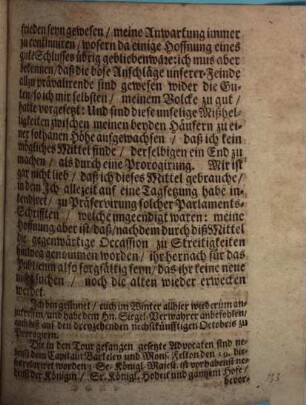 frieden seyn gewesen / meine Anwartung immer
zu continuiren / wofern da einige Hoffnung eines
gute Schlusses übrig geblieben wäre: ich mus aber
bekennen / daß die böse Anschläge unserer Feinde
allzu prävalirende sind gewesen wider die Gu-
ten / so ich mir selbsten / meinem Volcke zu gut /
hatte vorgesetzt: Und sind diese unselige Mißhel-
ligkeiten zwischen meinen beyden Häusern zu ei-
ner sothanen Höhe aufgewachsen / daß ich kein
mögliches Mittel finde / derselbigen ein End zu
machen / als durch eine Prorogirung. Mir ist
gar nicht lieb / daß ich dieses Mittel gebrauche /
in dem Jch allezeit auf eine Tagsetzung habe in-
tendiret / zu Präservirung solcher Parlaments-
Schrifften / welche ungeendigt waren: meine
Hoffnung aber ist / daß / nachdem durch diß Mittel
die gegenwärtige Occassion zu Streitigkeiten
hinweg genommen worden / ihr hernach für das
Publicum also sorgfältig seyn / das ihr keine neue
suchen / noch die alten wieder erwecken
werdet.
Jch bin gesinnet / euch im Winter allhier wiederum an-
zutreffen / und habe dem Hn. Siegel-Verwahrer anbefohlen /
euch biß auf den dreyzehenden nechstkünfftigen Octobris zu
Prorogiren.
Die in den Tour gefangen gesetzte Advocaten sind ne-
benst dem Capitain Barkeley und Mons. Felton den 19. die-
relaxiret worden: Se. Königl. Majest. ist vorhabens ne-
benst der Königin / Se. Königl. Hoheit und gantzem Hofe /
bevor-
193